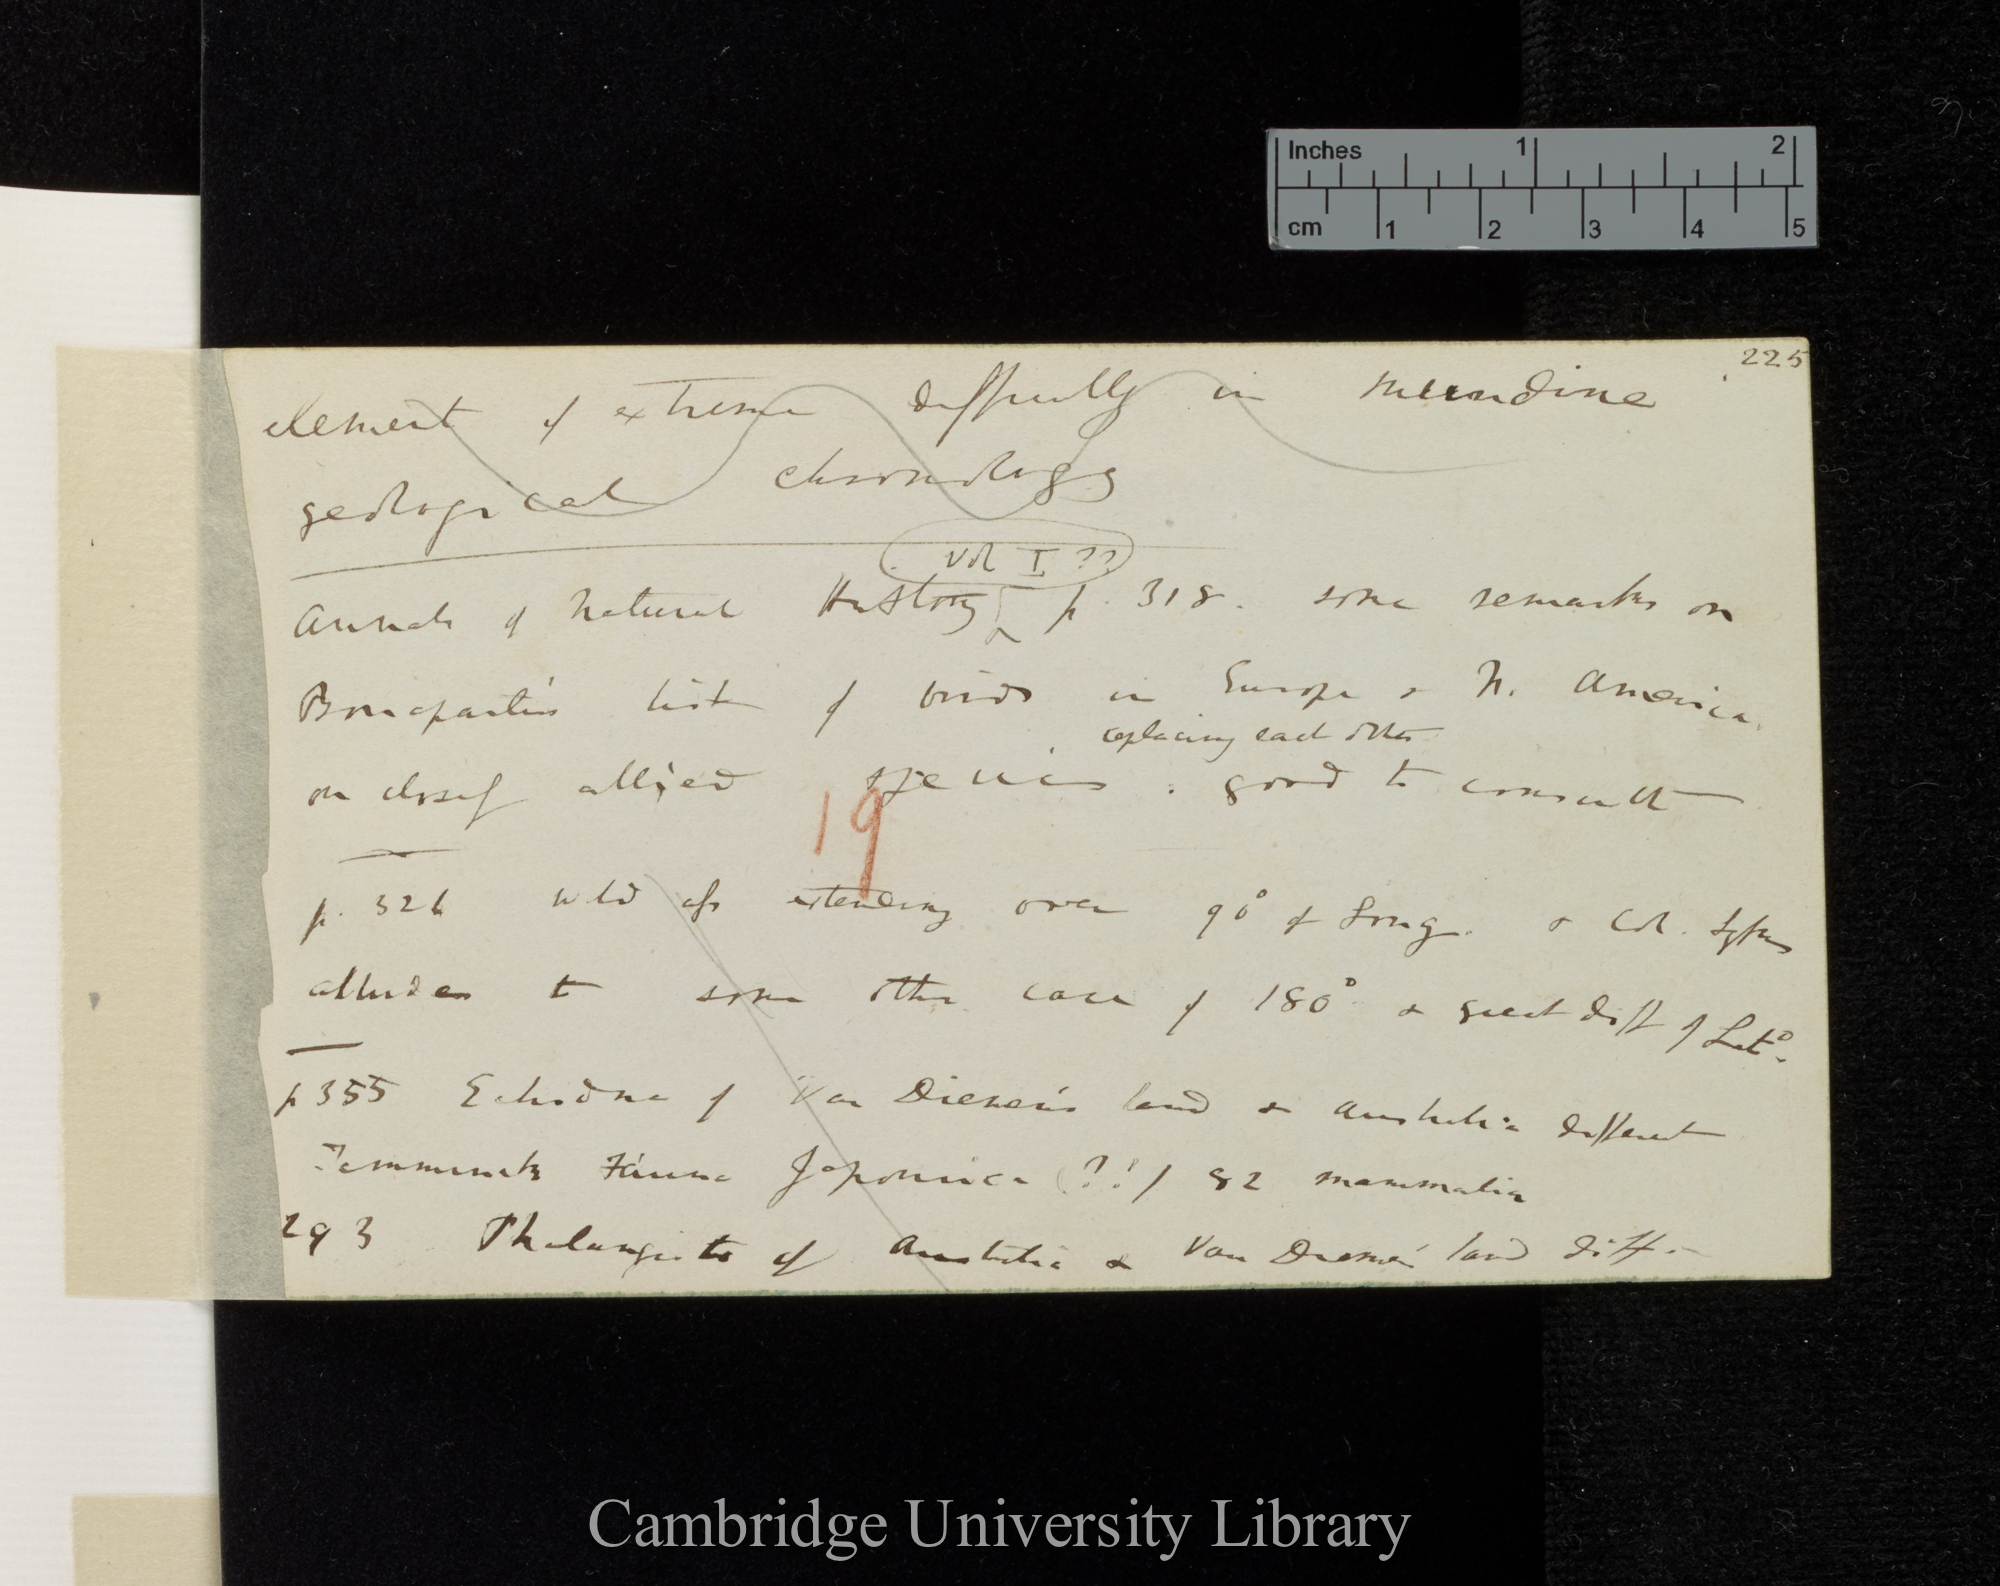 Inches 1 2
cm 1 2 3 4 5
225
element of extreme difficulty in mundine
geological chronology
Vol I ??
Annals of Natural History p. 318. some remarks on
Bonaparte's list of birds in Europe & N. America.
replacing each other
on closely allied species: good to consult
19
p. 326 wild ass extending over 90° of Long. & Col. Sykes
alludes to some other case of 180° & great diff of Lat°.
p 355 Echidna of Van Diemen's land & Australia different
Temminck's Fauna Japonica (?!) 82 mammalia
293 Phalangista of Australia & Van Diemen's land diff.
Cambridge University Library